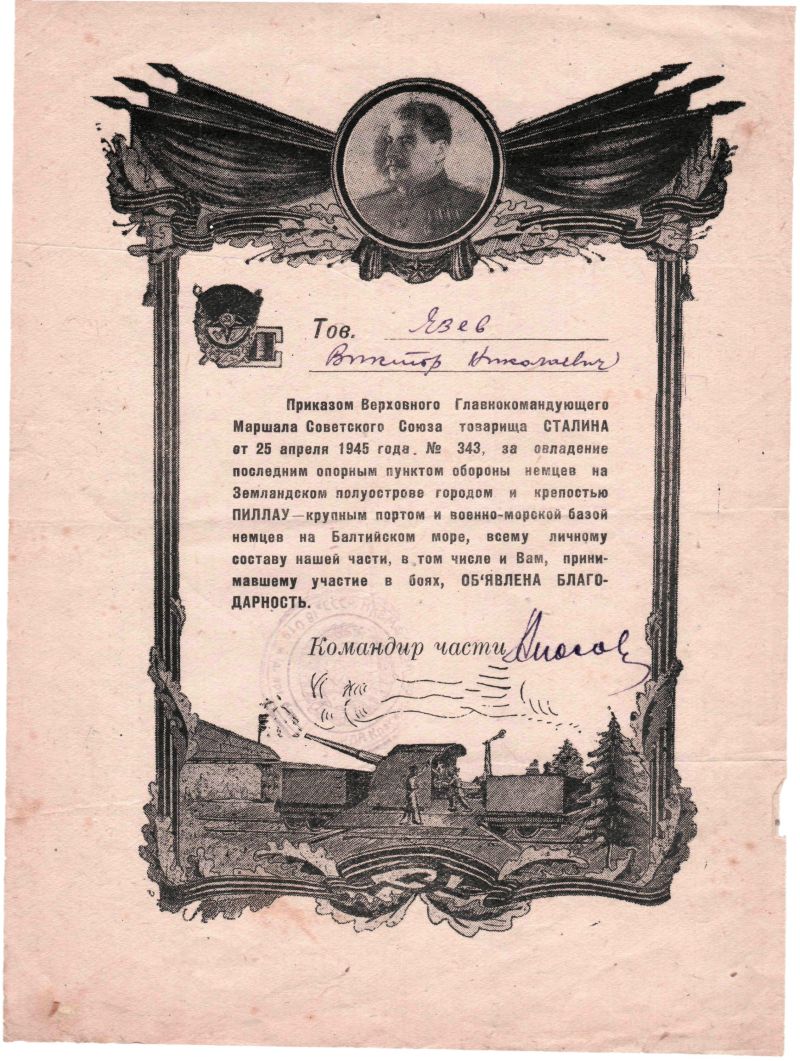 Тов. Язев
Виктор Николаевич
Приказом Верховного Главнокомандующего
Маршала Советского Союза товарища СТАЛИНА
от 25 апреля 1945 года. № 343, за овладение
последним опорным пунктом обороны немцев на
Земландском полуострове городом и крепостью
ПИЛЛАУ—крупным портом и военно-морской базой
немцев на Балтийском море, всему личному
составу нашей части, в том числе и Вам, прини-
мавшему участие в боях, ОБ‘ЯВЛЕНА БЛАГО-
ДАРНОСТЬ.
Командир части